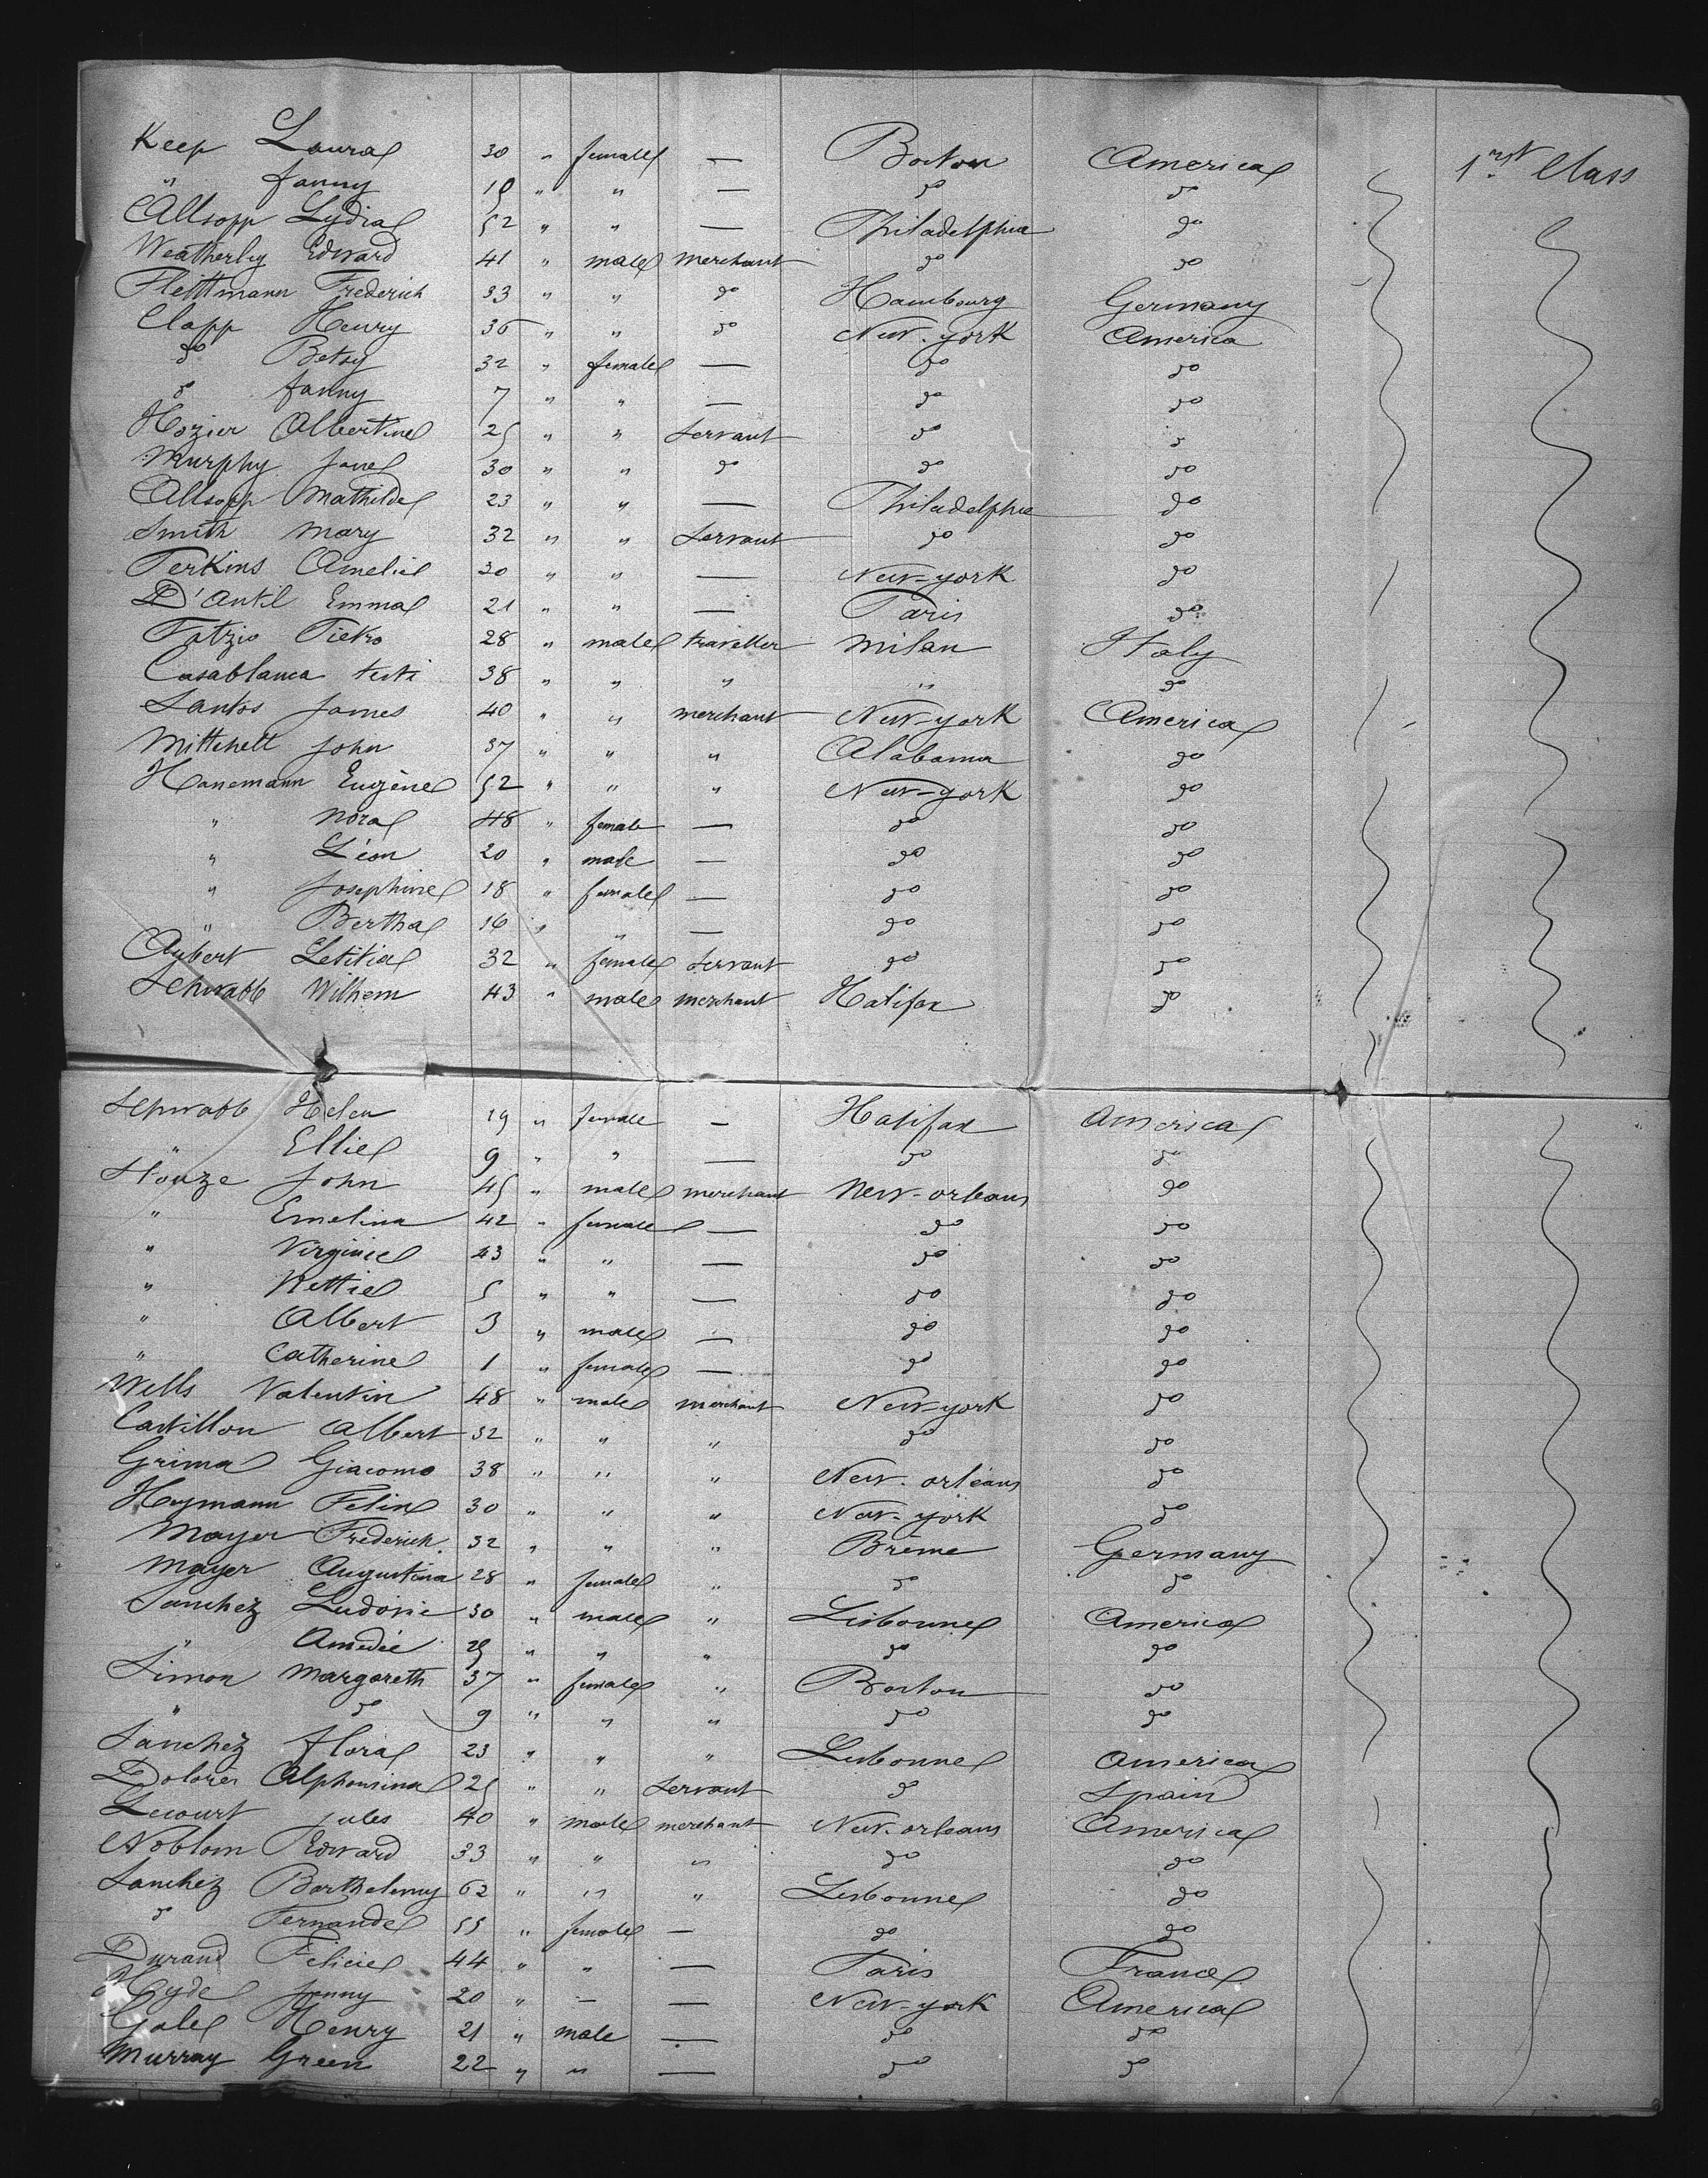 Keep Laura 30 " female — Boston America 1rst Class
" Fanny 19 " " — do do
Allsopp Lydia 52 " " — Philadelphia do
Weatherley Edward 41 " male merchant do do
Flettmann Frederich 33 " " do Hambourg Germany
Clapp Henry 36 " " do New-york America
do Betsy 32 " female — do do
do Fanny 7 " " — do do
Hozier Albertine 25 " " Servant do do
Murphy Jane 30 " " do do do
Allsopp Mathilde 23 " " — Philadelphia do
Smith Mary 32 " " Servant do do
Perkins Amelie 30 " " — New-york do
D'Antil Emma 21 " " — Paris do
Fatzio Pietro 28 " male traveller Milan Italy
Casablanca 38 " " " " do
Santos James 40 " " merchant New-york America
Mittchell John 37 " " " Alabama do
Hanemann Eugène 52 " " " New-york do
" Nora 48 " female — do do
" Léon 20 " male — do do
" Josephine 18 " female — do do
" Bertha 16 " " — do do
Aubert Letitia 32 " female Servant do do
Schwabb Wilhem 43 " male merchant Halifax do
Schwabb Helen 29 " female — Halifax America
" Ellie 9 " " — do do
Stouze John 45 " male merchant New-orleans do
" Emelina 42 " female — do do
" Virginie 43 " " — do do
" Nettie 5 " " — do do
" Albert 3 " male — do do
" Catherine 1 " female — do do
Wells Valentin 48 " male merchant New-york do
Castillon Albert 32 " " " do do
Grima Giacomo 38 " " " New-orléans do
Heymann Felix 30 " " " New-york do
Mayer Frederich 32 " " " Brême Germany
Mayer Augustina 28 " female " do do
Sanchez Ludovic 30 " male " Lisbonne America
" Amedée 25 " " " do do
Simon Margareth 37 " female " Boston do
" do 9 " " " do do
Sanchez Flora 23 " " " Lisbonne America
Dolorès Alphonsina 25 " " Servant do Spain
Lecourt Jules 40 " male merchant New-orleans America
Noblom Edward 33 " " " do do
Sanchez Barthelemy 62 " " " Lisbonne do
do Fernande 55 " female — do do
Durand Felicie 44 " " — Paris France
Hyde Jenny 20 " — — New-york America
Gale Henry 21 " male — do do
Murray Green 22 " " — do do